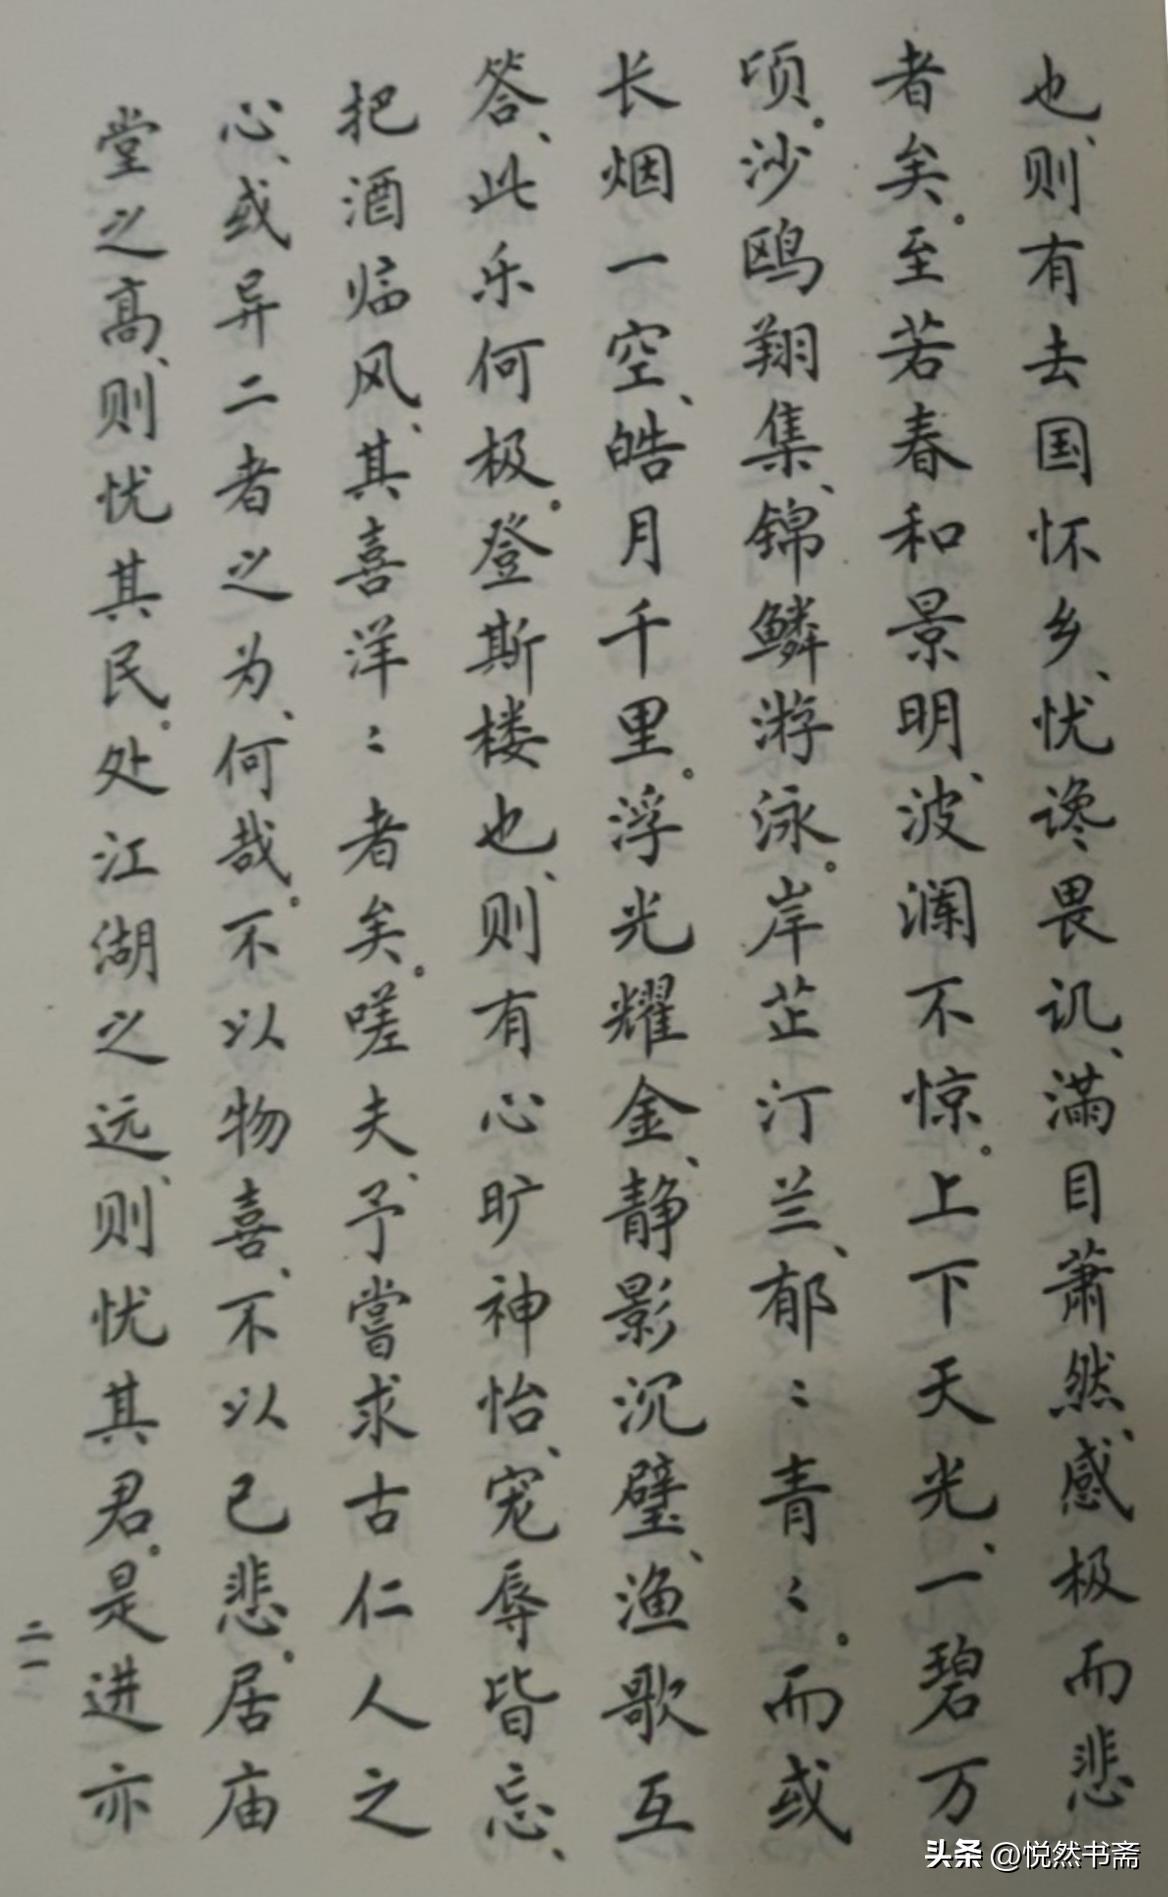 也、则有去国怀乡、忧谗畏讥、满目萧然、感极而悲
者矣。至若春和景明、波澜不惊。上下天光、一碧万
顷。沙鸥翔集、锦鳞游泳。岸芷汀兰、郁：青：。而或
长烟一空、皓月千里。浮光耀金、静影沉璧、渔歌互
答、此乐何极。登斯楼也、则有心旷神怡、宠辱皆忘、
把酒临风、其喜洋：者矣。嗟夫、予嘗求古仁人之
心、或异二者之为、何哉。不以物喜、不以己悲。居庙
堂之高、则忧其民。处江湖之远、则忧其君。是进亦
二一
头条 @悦然书斋